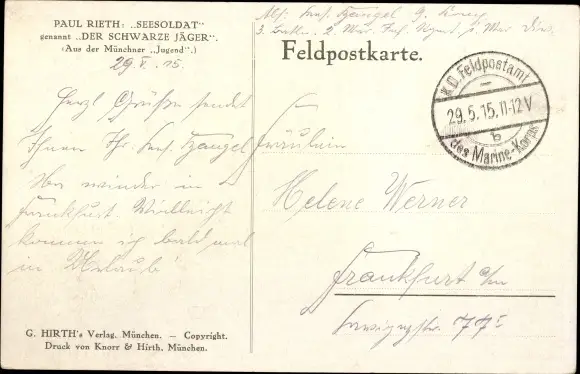 PAUL RIETH: „SEESOLDAT"
genannt „DER SCHWARZE JÄGER".
(Aus der Münchner „Jugend".)
29.V.15.
Herzl. Grüße sendet
Ihnen Ihr
wieder in
Frankfurt. Vielleicht
kommen ich bald mal
in Urlaub!
G. HIRTH's Verlag, München. — Copyright.
Druck von Knorr & Hirth, München.
Feldpostkarte.
K.D. Feldpostamt
29.5.15.11-12V
b
des Marine-Korps
Fräulein
Helene Werner
Frankfurt a/m